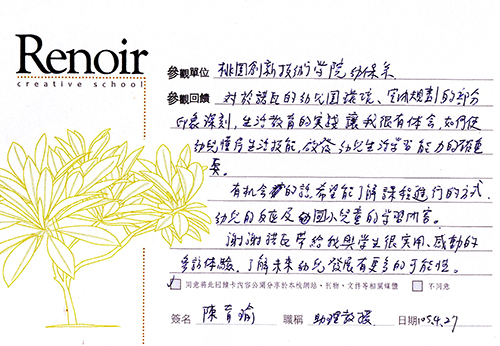 Renoir
creative school
參觀單位 桃園創新技術學院幼保系
參觀回饋 對於諾瓦的幼兒園環境、空間規劃的部分
印象深刻,生活教育的實踐讓我很有体會,如何使
幼兒懂得生活技能,啟發幼兒生活學習能力的確重
要。
有机会的話,希望能了解課程進行的方式,
幼兒的反應及幼兒園小兒童的學習內容。
謝謝諾瓦帶給我與學生很實用、感動的
參訪体驗,了解未來幼兒發展有更多的可能性。
同意將此回饋卡內容公開分享於本校網站、刊物、文件等相關媒體 不同意
簽名 陳育瑜 職稱 助理教授 日期 105.4.27